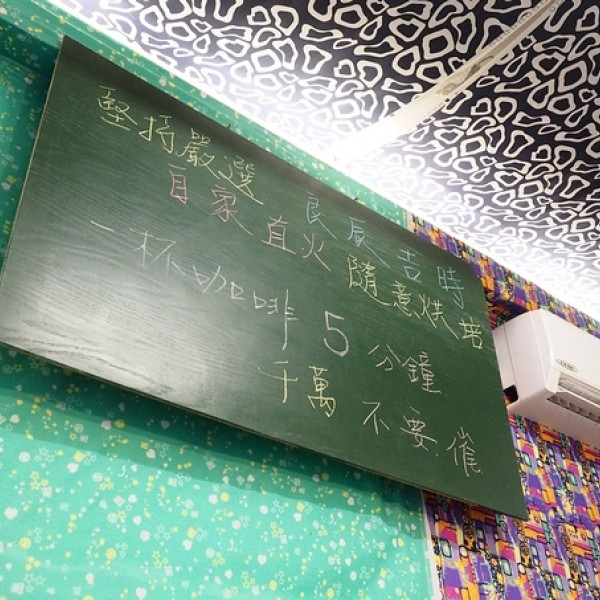 堅持嚴選 良辰吉時
自家直火 隨意烘培
一杯咖啡 5 分鐘
千萬不要催